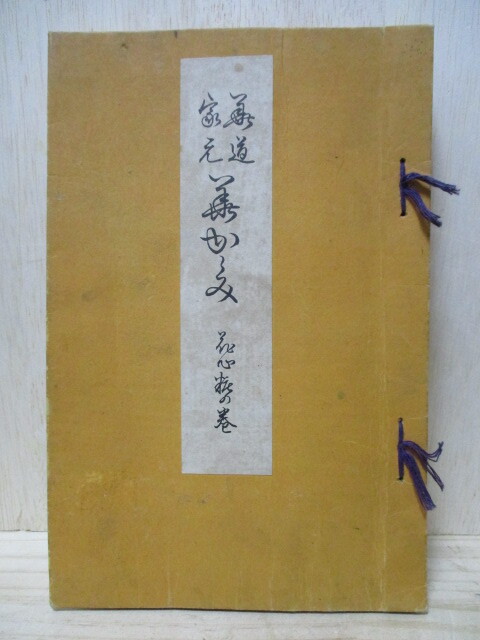 華道
家元
華かゝみ
花心粧の巻